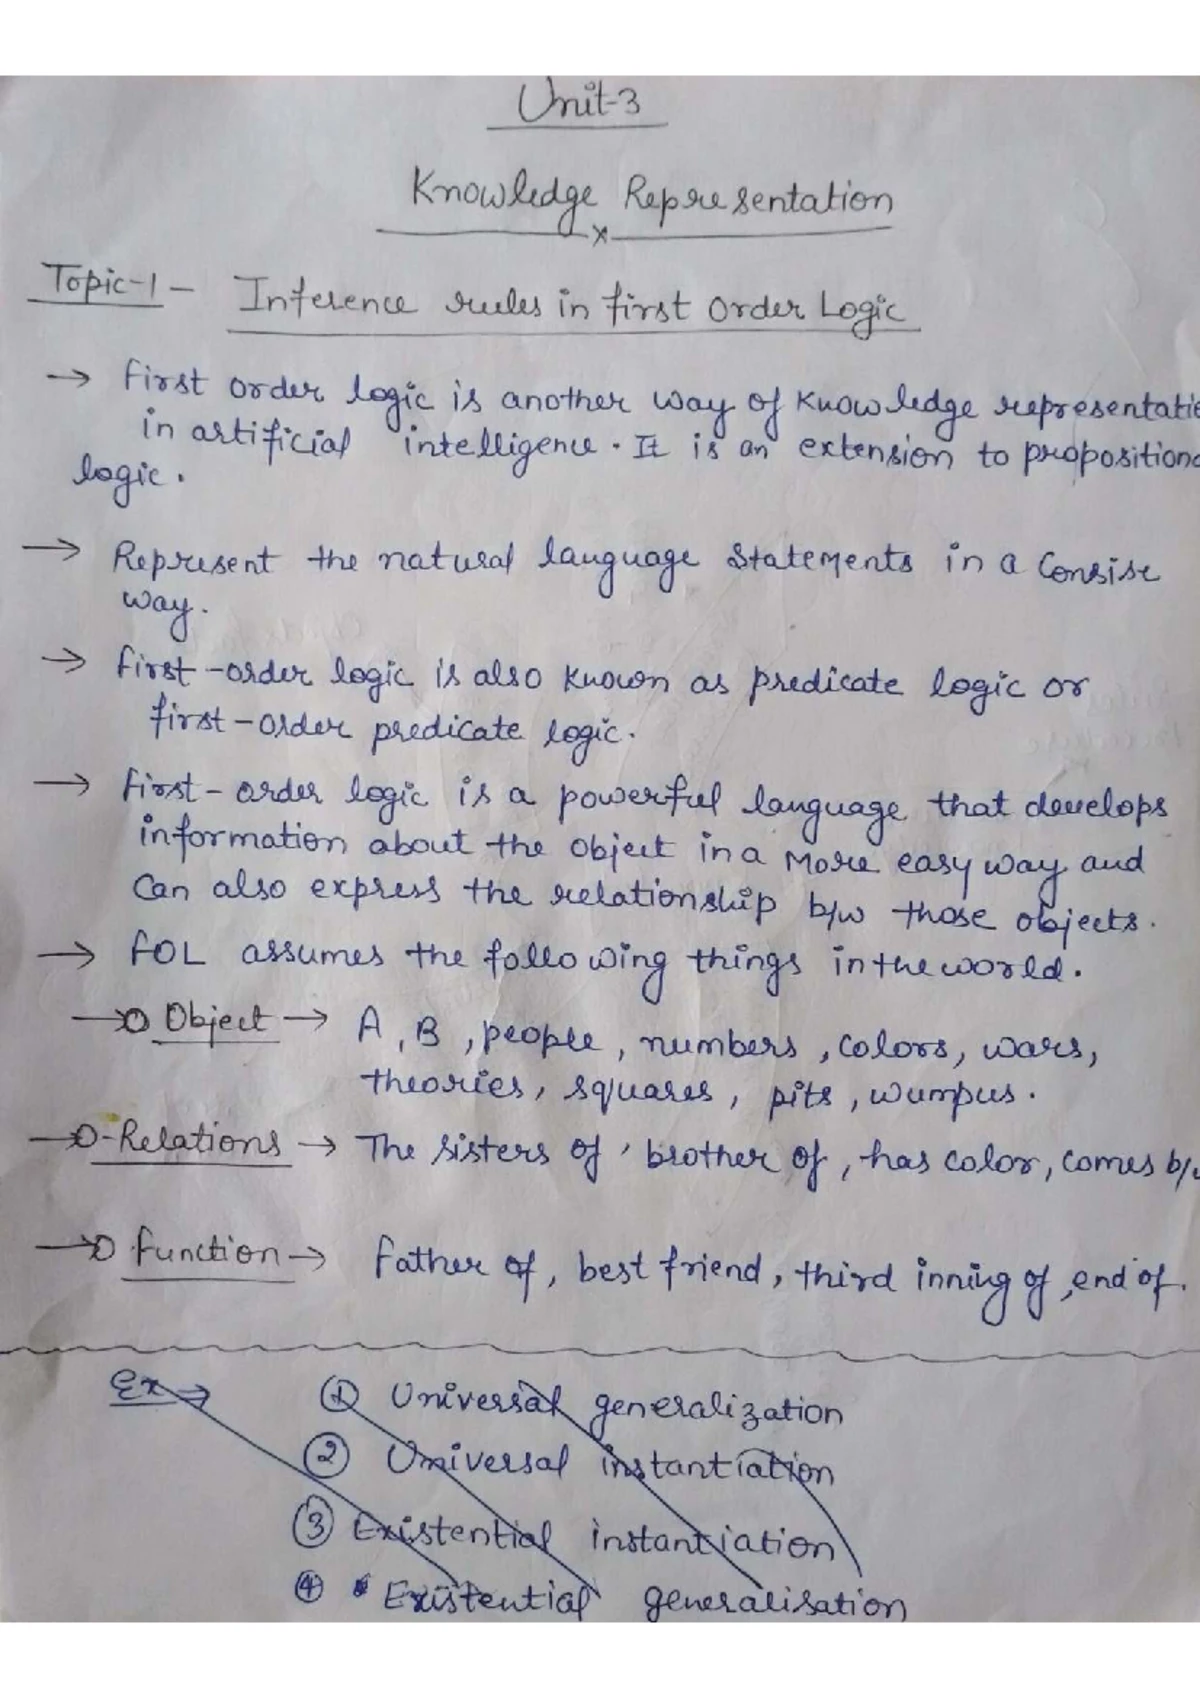 Unit-3
Knowledge Representation
x
Topic-1 - Inference rules in first Order Logic
→ first order logic is another way of Knowledge representatio
in artificial intelligence. It is an extension to propositiona
logic.
→ Represent the natural language Statements in a Consise
way.
→ first-order logic is also Known as predicate logic or
first-order predicate logic.
→ first-order logic is a powerful language that develops
information about the object in a More easy way and
Can also express the relationship b/w those objects.
→ FOL assumes the following things in the world.
→ Object → A, B, people, numbers, colors, wars,
theories, squares, pits, wumpus.
→ Relations → The sisters of, brother of, has color, comes b/w
→ function → father of, best friend, third inning of, end of.
Ex → ① Universal generalization
② Universal instantiation
③ Existential instantiation
④ Existential generalisation